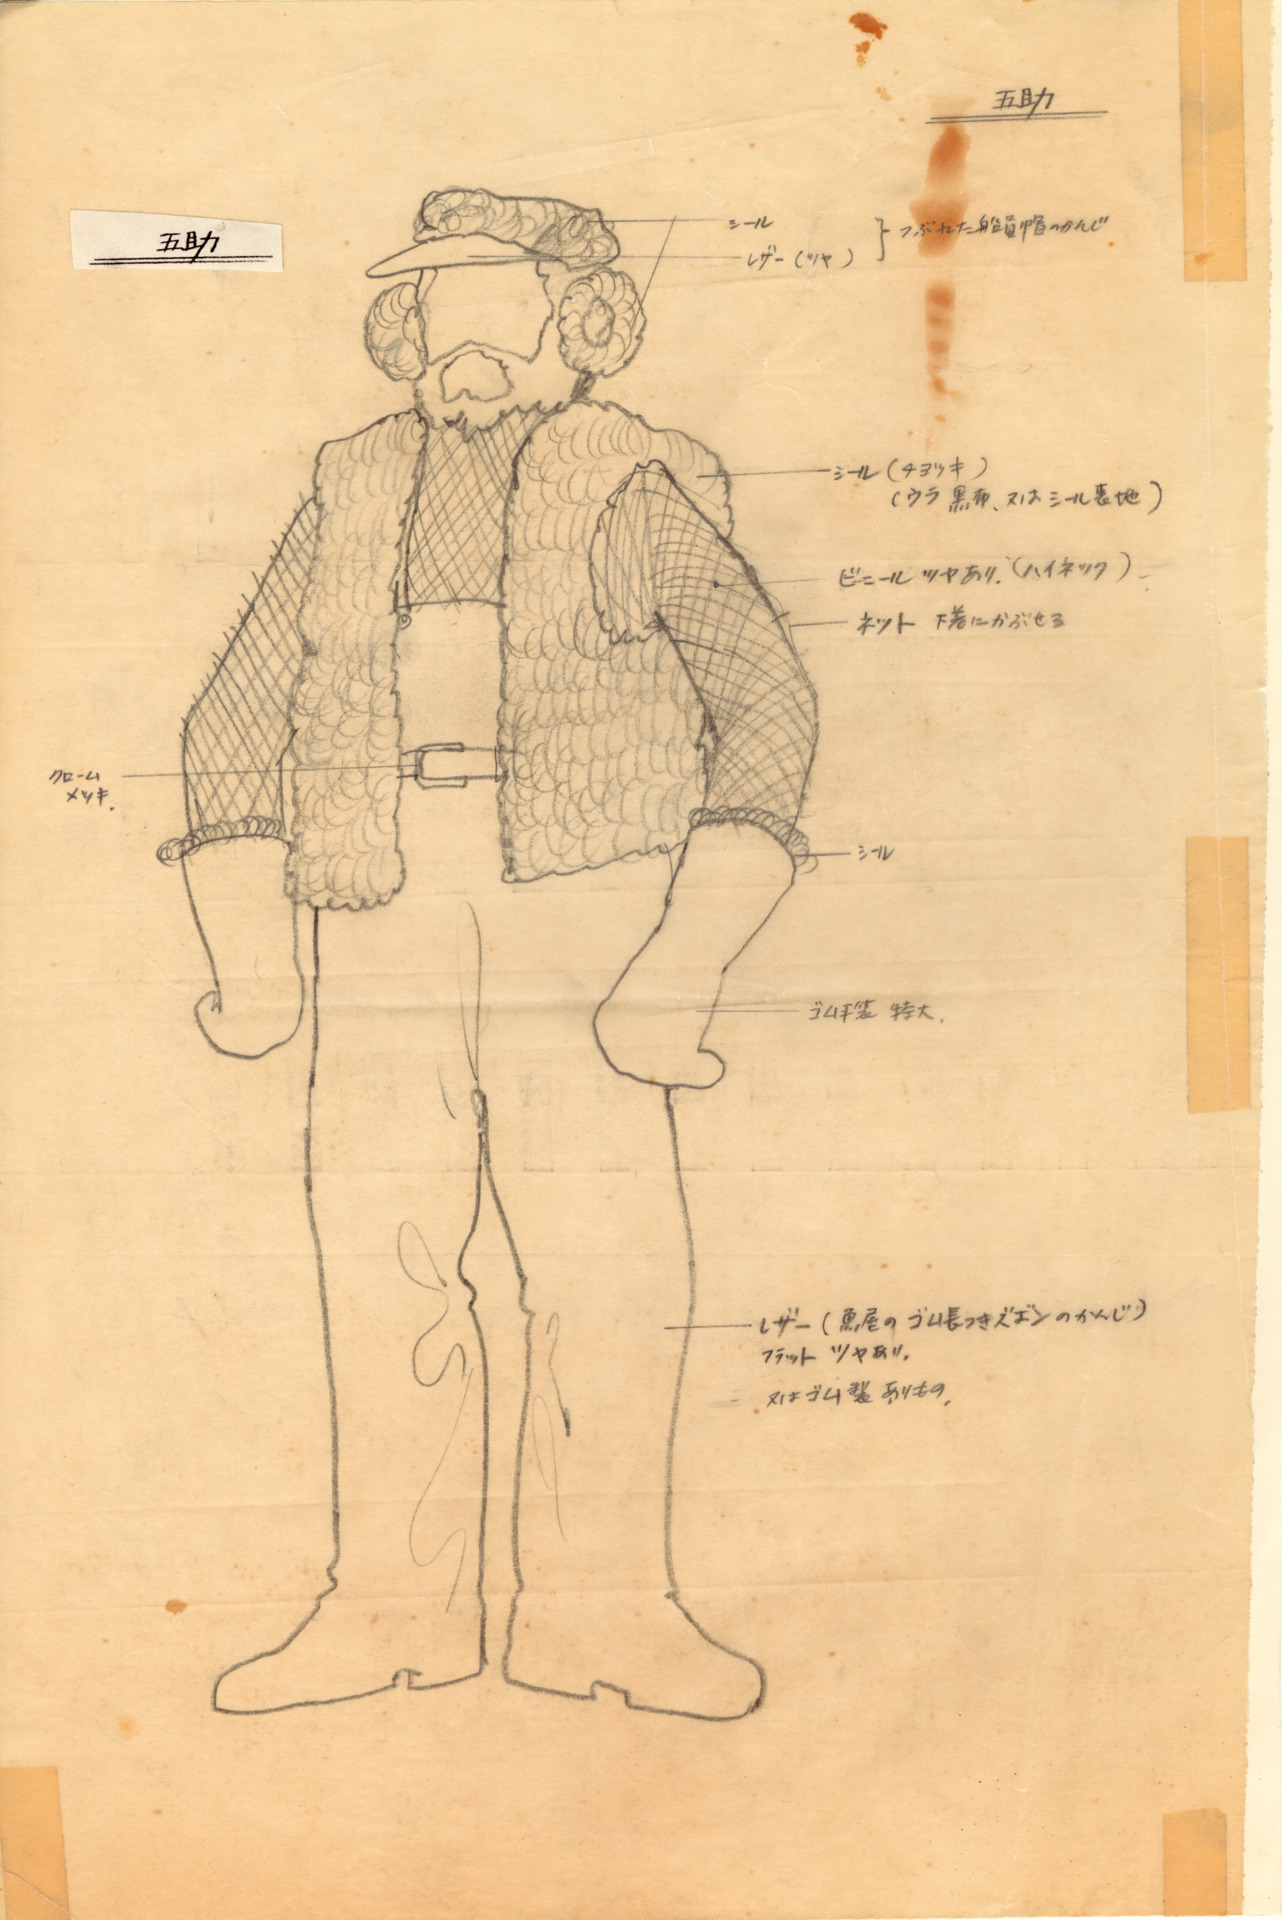 五助
五助
シール
レザー(ツヤ)
つぶれた船員帽のかんじ
シール(チョッキ)
(ウラ黒布、又はシール裏地)
ビニールツヤあり.(ハイネック)
ネット 下着にかぶせる
クローム
メッキ.
シール
ゴム手袋 特大.
レザー(魚屋のゴム長つきズボンのかんじ)
フラット ツヤあり.
又はゴム製ありもの.